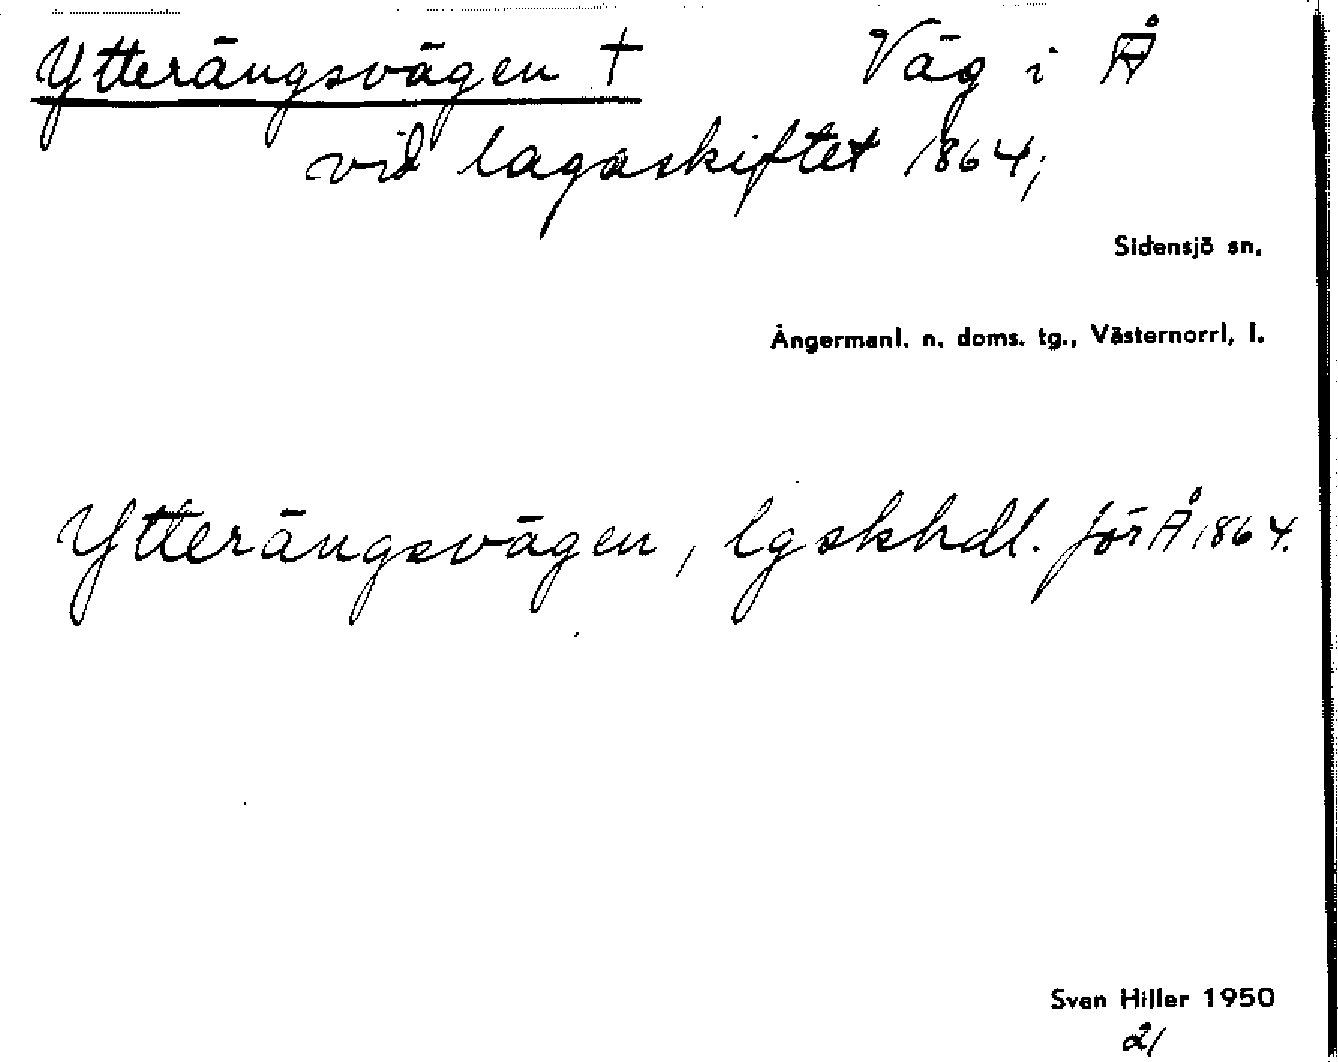 Ytterängsvägen † Väg i Å
vid lagaskiftet 1864;
Sidensjö sn.
Ångermanl. n. doms. tg., Västernorrl. l.
Ytterängsvägen, lgskhdl. för Å 1864.
Sven Hiller 1950